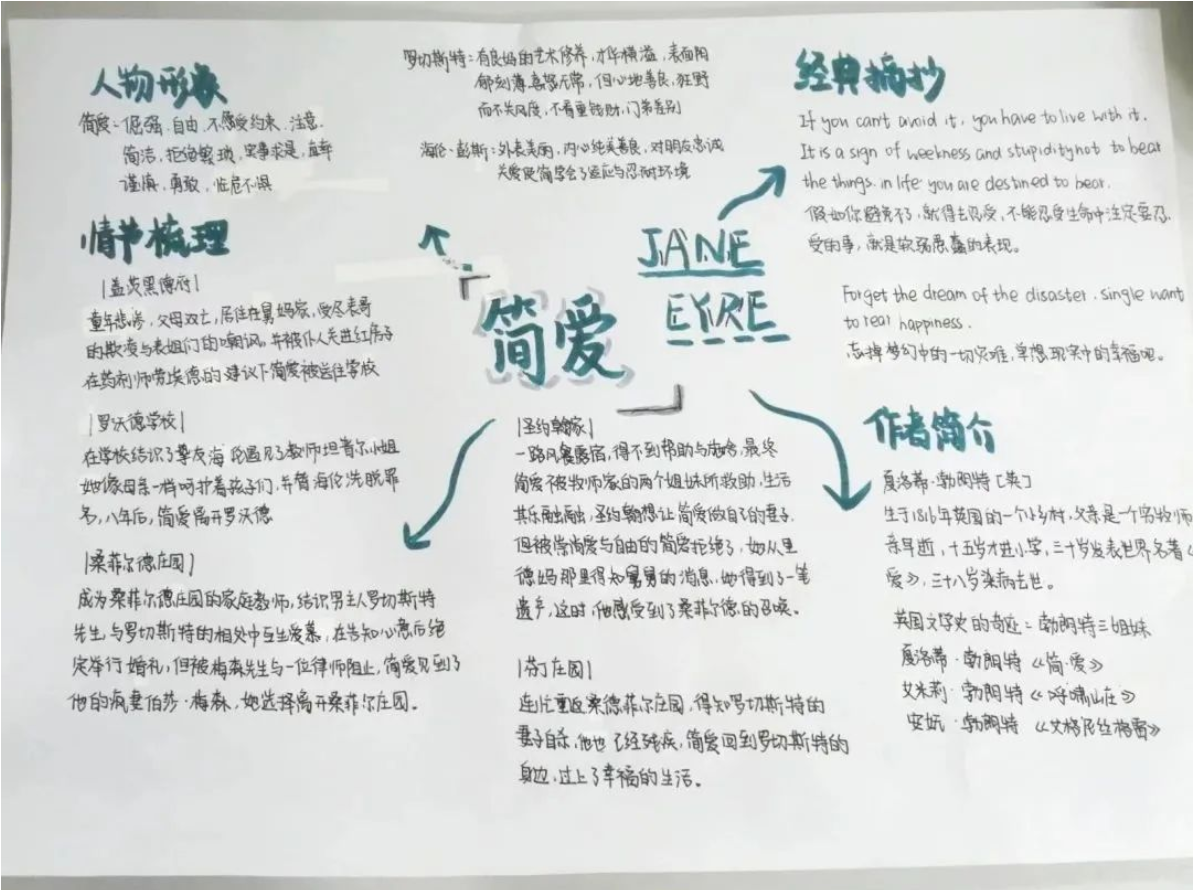 人物形象
简爱：倔强、自由、不愿受约束、注意、
简洁，拒绝繁琐，实事求是，直率
谨慎，勇敢，临危不惧
罗切斯特：有良好的艺术修养，才华横溢，表面阴
郁刻薄喜怒无常，但心地善良，狂野
而不失风度，不看重钱财，门第差别
海伦·彭斯：外表美丽，内心纯美善良，对朋友忠诚
关爱使简学会了适应与忍耐环境
情节梳理
|盖茨黑德府|
童年悲惨，父母双亡，居住在舅妈家，受尽表哥
的欺凌与表姐们的嘲讽。并被仆人关进红房子
在药剂师劳埃德的建议下简爱被送往学校
|罗沃德学校|
在学校结识了挚友海伦遇见了教师坦普尔小姐
她像母亲一样呵护着孩子们，并替海伦洗脱罪
名，八年后，简爱离开罗沃德
|桑菲尔德庄园|
成为桑菲尔德庄园的家庭教师，结识男主人罗切斯特
先生，与罗切斯特的相处中互生爱慕，在告知心意后绝
定举行婚礼，但被梅森先生与一位律师阻止，简爱见到了
他的疯妻伯莎·梅森，她选择离开桑菲尔庄园。
简爱
JANE
EYRE
|圣约翰家|
一路风餐露宿，得不到帮助与施舍，最终
简爱被牧师家的两个姐妹所救助，生活
其乐融融，圣约翰想让简爱做自己的妻子，
但被崇尚爱与自由的简爱拒绝了，她从里
德妈那里得知舅舅的消息，她得到了一笔
遗产，这时，他感受到了桑菲尔德的召唤。
|芬丁庄园|
连忙重返桑德菲尔庄园，得知罗切斯特的
妻子自杀，他也已经残疾，简爱回到罗切斯特的
身边，过上了幸福的生活。
经典摘抄
If you can't avoid it, you have to live with it.
It is a sign of weekness and stupidity not to bear
the things in life you are destined to bear.
假如你避免不了，就得去忍受，不能忍受生命中注定要忍
受的事，就是软弱愚蠢的表现。
Forget the dream of the disaster, single want
to real happiness.
忘掉梦幻中的一切灾难，单想现实中的幸福吧。
作者简介
夏洛蒂·勃朗特［英］
生于1816年英国的一个小乡村，父亲是一个穷牧师
亲早逝，十五岁才进小学，三十岁发表世界名著《
爱》，三十八岁染病去世。
英国文学史的奇迹：勃朗特三姐妹
夏洛蒂·勃朗特《简·爱》
艾米莉·勃朗特《呼啸山庄》
安妮·勃朗特《艾格尼丝格雷》